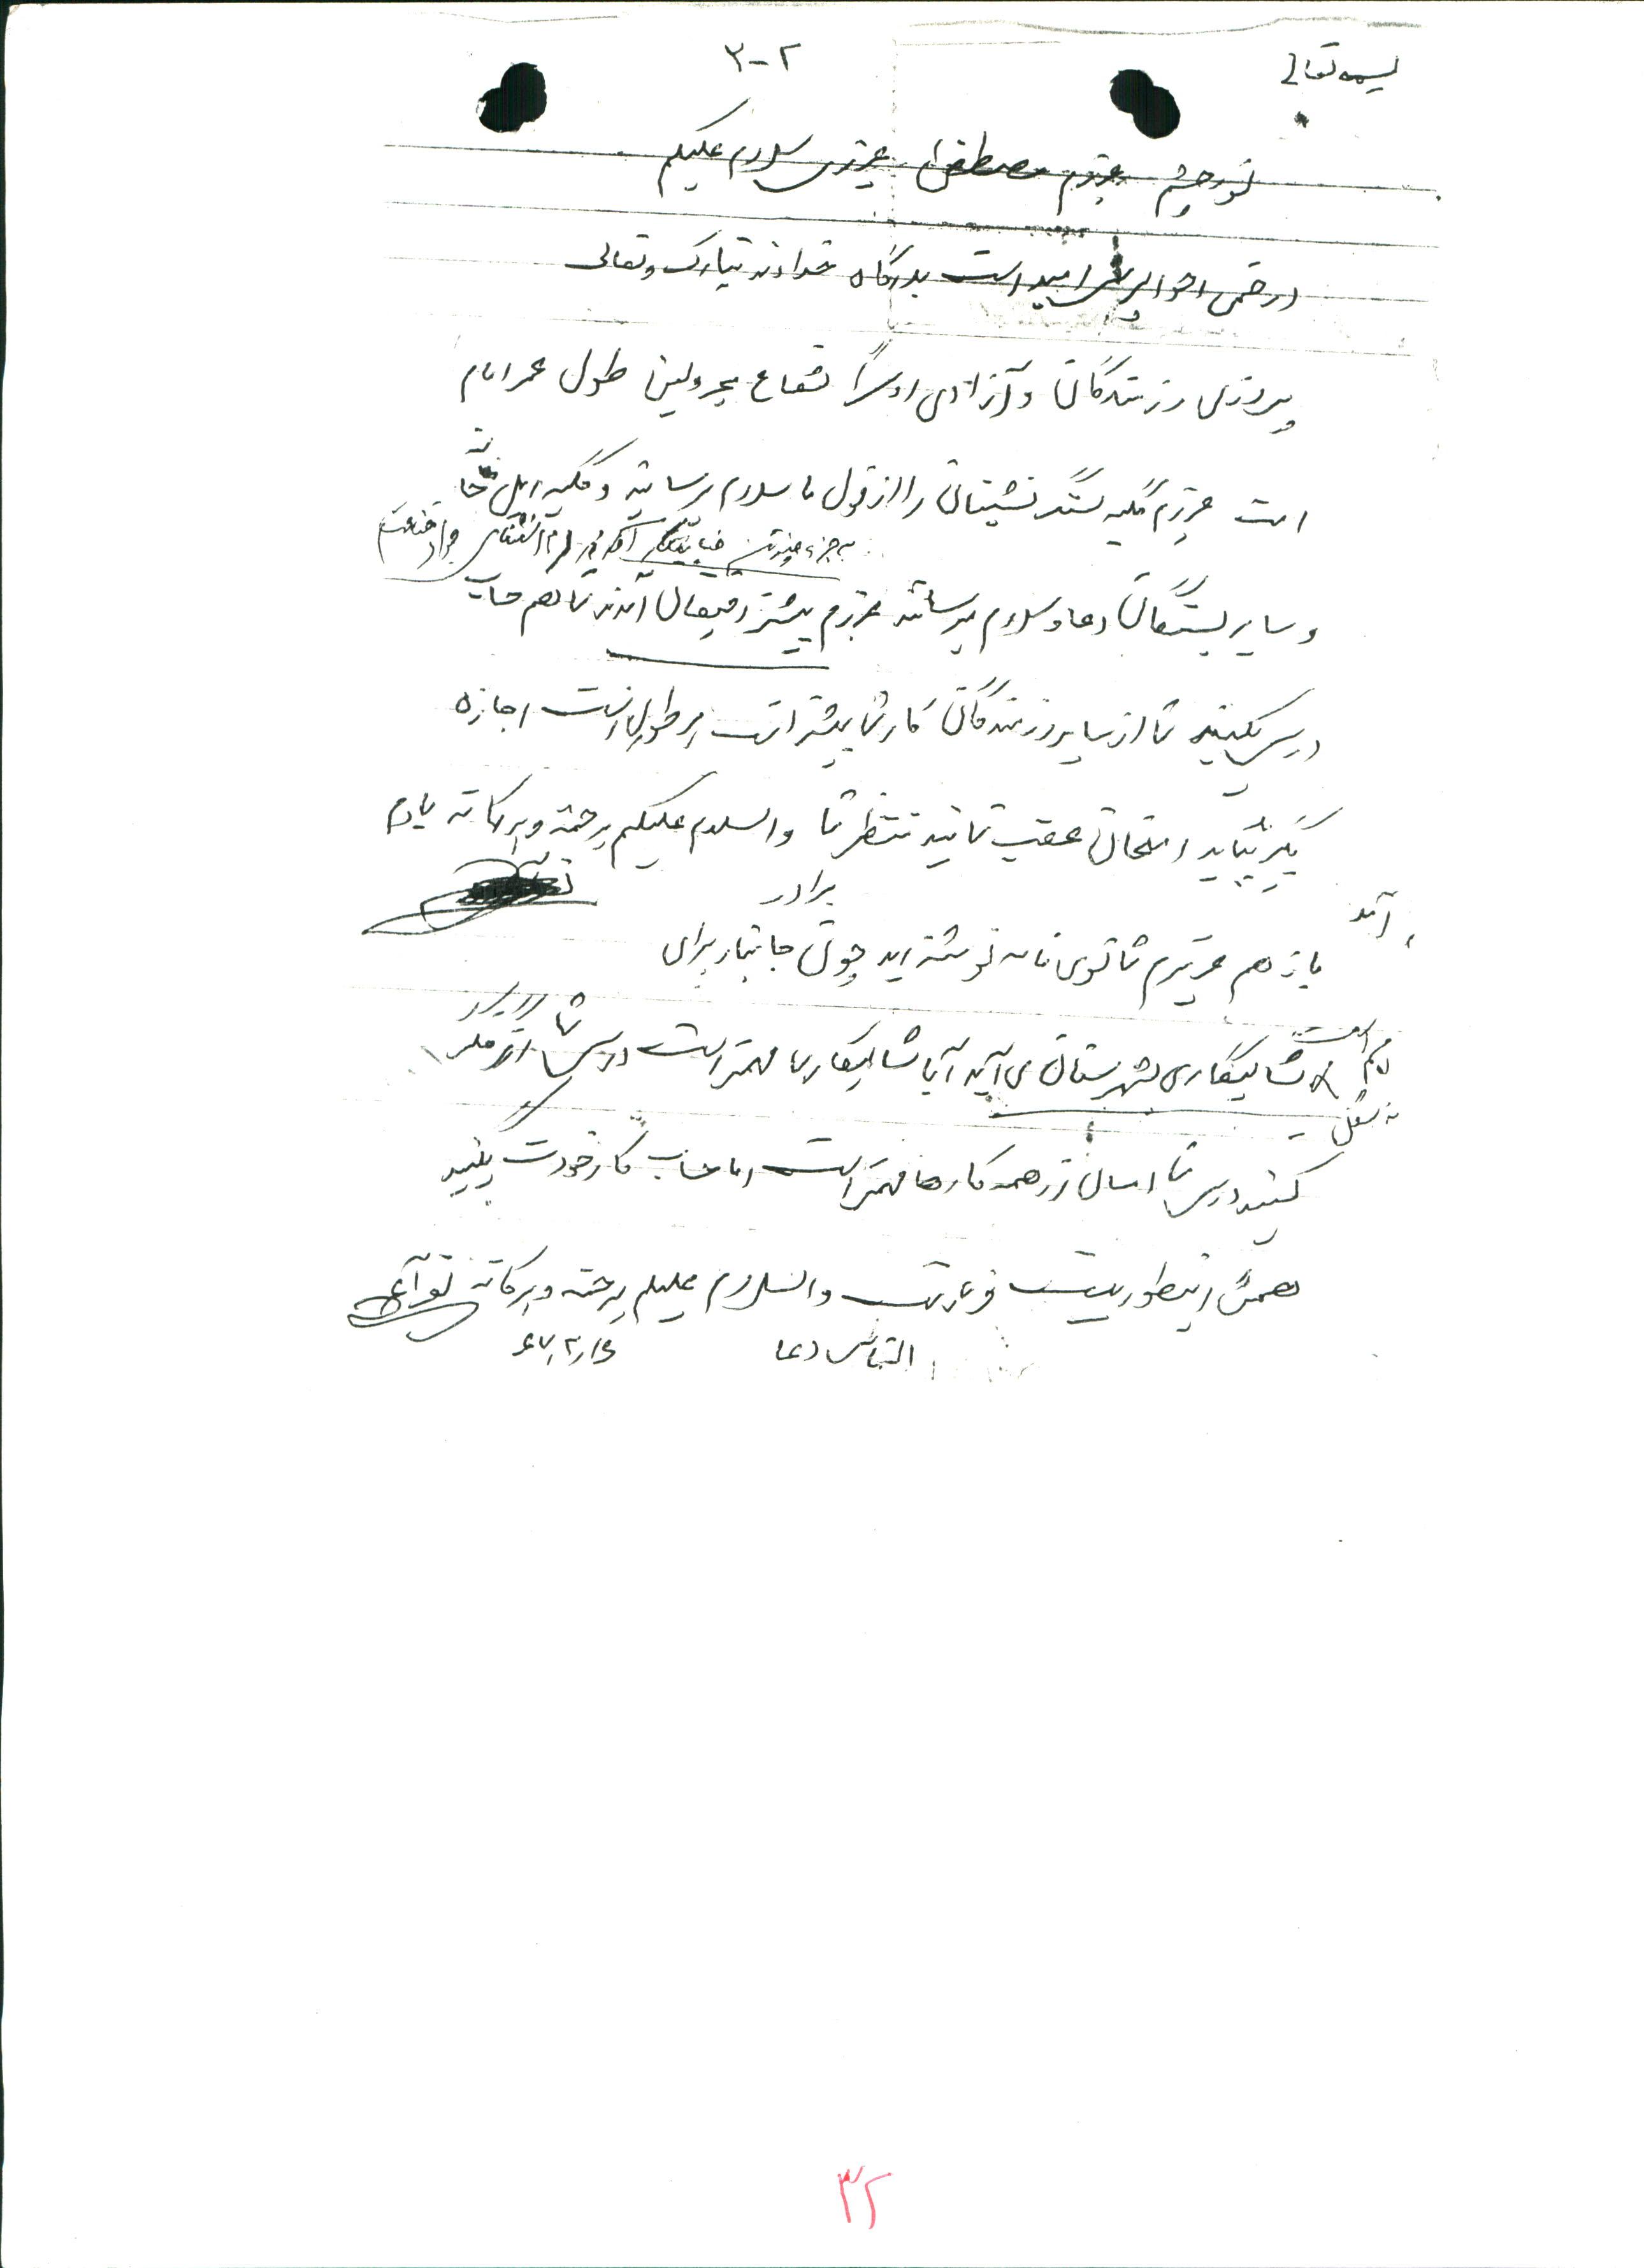 بسمه تعالی
۳-۲
نورچشم عزیزم مصطفی عزیزی سلام علیکم
در ضمن احوالپرسی امید است بدرگاه خداوند تبارک و تعالی
پیروزی رزمندگان و آزادی اسرا شفاء مجروحین طول عمر امام
است عزیزم کلیه سنگر نشینان را از قول ما سلام برسانید و کلیه اهل خانه
و سایر بستگان دعا و سلام میرسانند عزیزم بیشتر رفیقان آمدند شما هم حساب
درس بکنید شما از سایر رزمندگان کارتان بیشتر است هر طوری است اجازه
بگیر بیاید امتحان عقب نمانید منتظر شما والسلام علیکم برحمة وبرکاته یادم
آمد
باز هم عزیزم شما توی نامه نوشته اید چون جانباز برادر برای
شالیکاری شهرستان می آید آیا شالیکاری مهمتر است درس شما
کنید درس شما امسال از همه کارها مهمتر است اما حساب کار خودت بکنید
همش اینطور نیست والسلام علیکم برحمة وبرکاته
التماس دعا
۶۷/۲/۱۶
۳۲